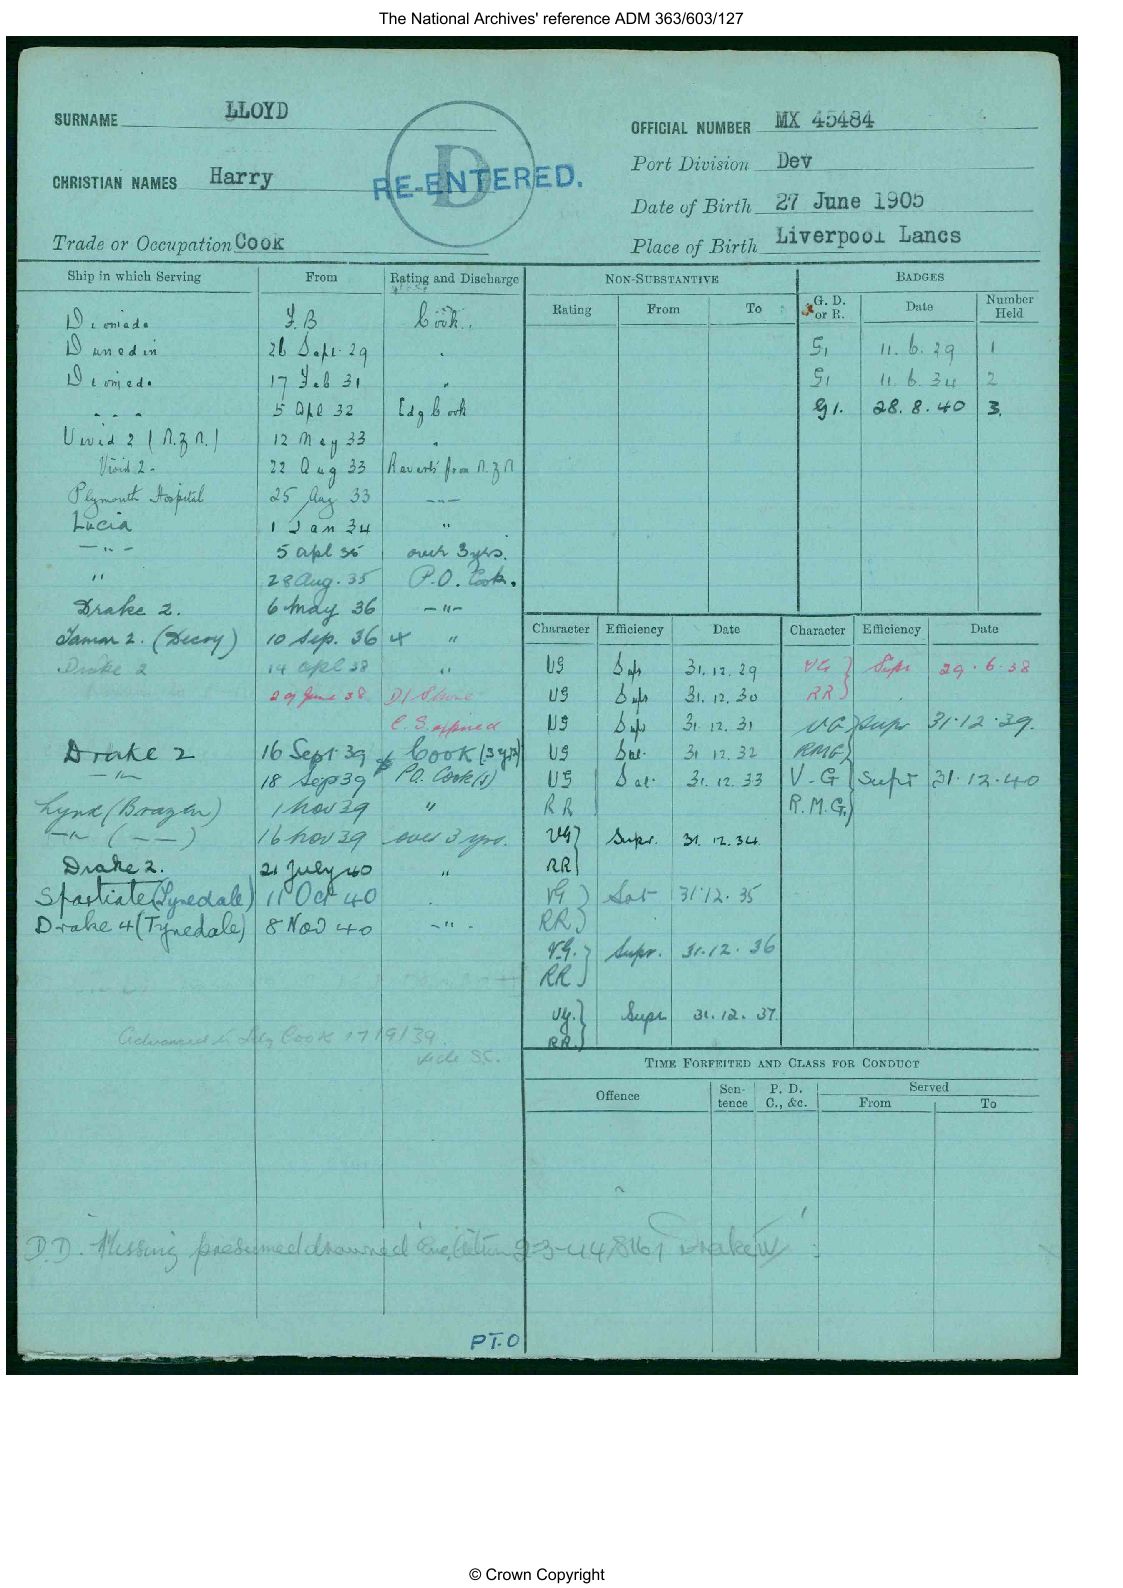 The National Archives' reference ADM 363/603/127
SURNAME LLOYD
OFFICIAL NUMBER MX 45484
Port Division Dev
CHRISTIAN NAMES Harry
D
RE-ENTERED.
Date of Birth 27 June 1905
Trade or Occupation Cook
Place of Birth Liverpool Lancs
Ship in which Serving From Rating and Discharge
Diomede J.B Cook.
Dunedin 26 Sept. 29 "
Diomede 17 Feb 31 "
" " " 5 Apl 32 Ldg Cook
Vivid 2 (N.Z.N.) 12 May 33 "
Vivid 2 - 22 Aug 33 Reverts from N.Z.N
Plymouth Hospital 25 Aug 33 —"—
Lucia 1 Jan 34 "
—"— 5 apl 35 over 3 yrs.
" 28 Aug. 35 P.O. Cook.
Drake 2. 6 May 36 —"—
Tamar 2. (Decoy) 10 Sep. 36 "
Drake 2 14 apl 38 "
29 June 38 D/ Shore
C.S. expired
Drake 2 16 Sept 39 Cook (3 yrs)
—"— 18 Sep 39 P.O. Cook(s)
Lynx (Brazen) 1 Nov 39 "
—"— (——) 16 Nov 39 over 3 yrs.
Drake 2. 21 July 40 "
Spartiate (Tynedale) 11 Oct 40 .
Drake 4 (Tynedale) 8 Nov 40 —"—
Advanced to Ldg Cook 17/9/39
D.D. Missing presumed drowned
PT.O
NON-SUBSTANTIVE
Rating From To
BADGES
G. D. or R. Date Number Held
G1 11. 6. 29 1
G1 11. 6. 34 2
G1. 28. 8. 40 3.
Character Efficiency Date
VG Sup 31. 12. 29
VG Sup 31. 12. 30
VG Sup 31. 12. 31
VG Sat. 31 12. 32
VG Sat. 31. 12. 33
RR
VG Supr. 31. 12. 34
RR
VG Sat 31.12. 35
RR
V.G. Supr. 31.12. 36
RR
VG. Supr 31. 12. 37
RR.
Character Efficiency Date
VG Supr 29. 6. 38
RR
VG Supr 31.12.39.
RMG
V-G Supr 31.12.40
R.M.G.
TIME FORFEITED AND CLASS FOR CONDUCT
Offence Sen-tence P. D. C., &c. Served
From To
© Crown Copyright